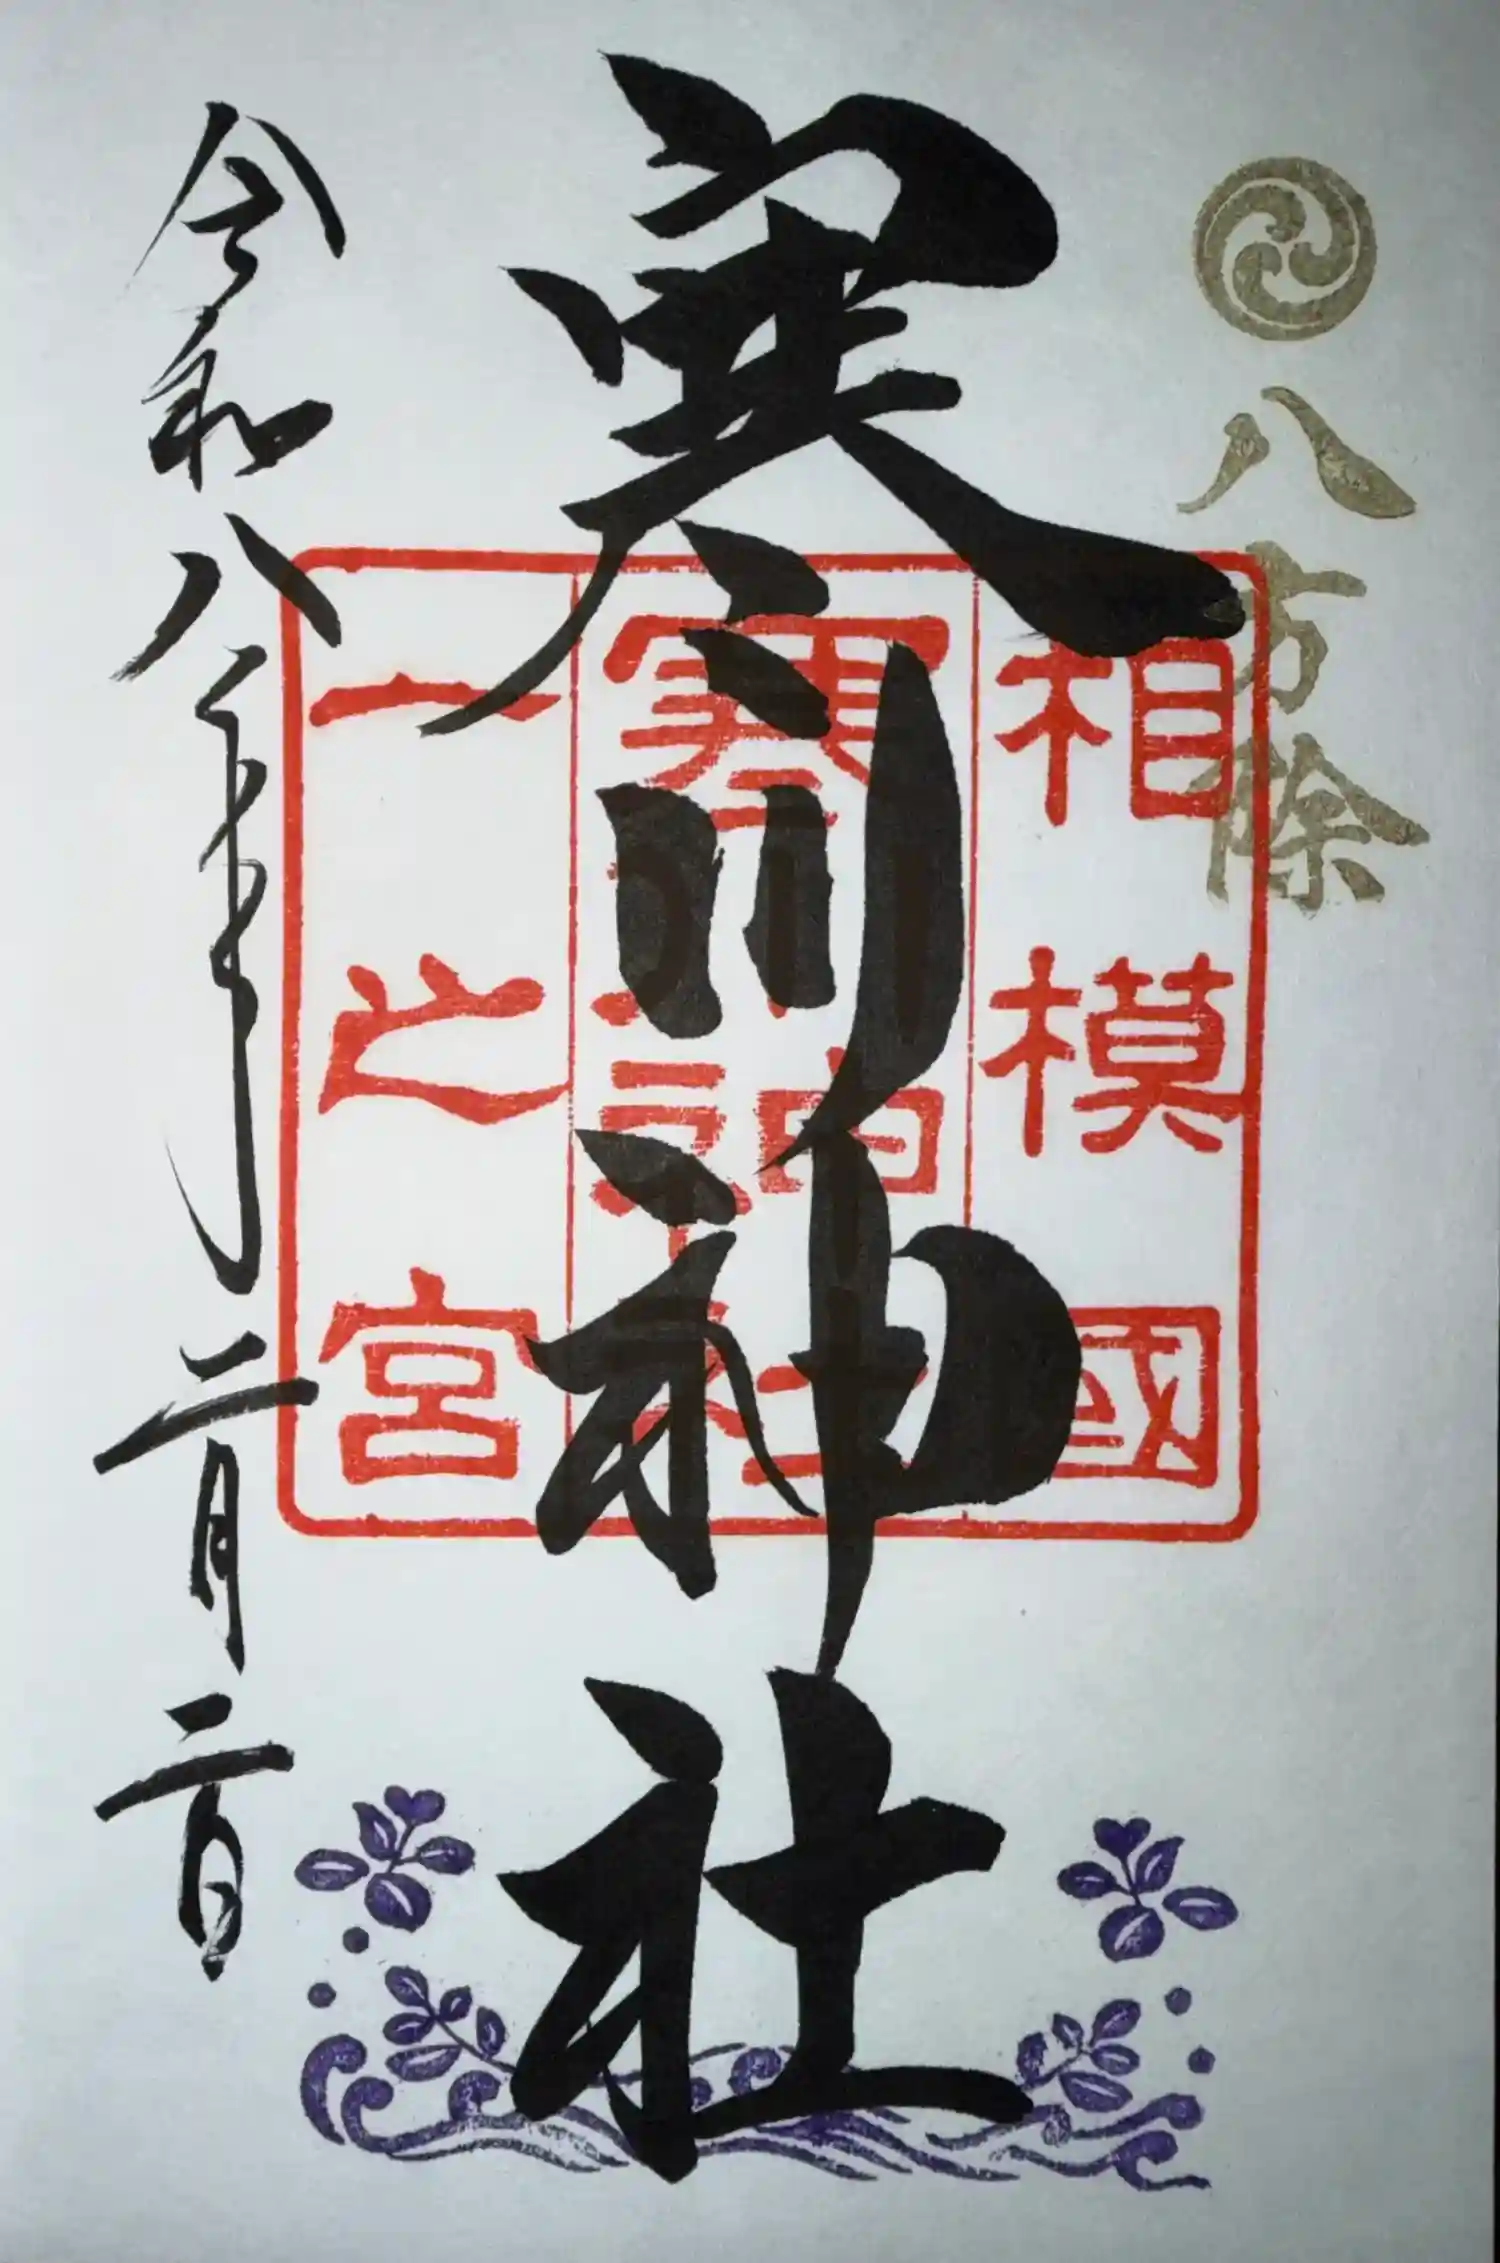 八方除
相模國
寒川神社
一之宮
寒川神社
令和八年二月二日